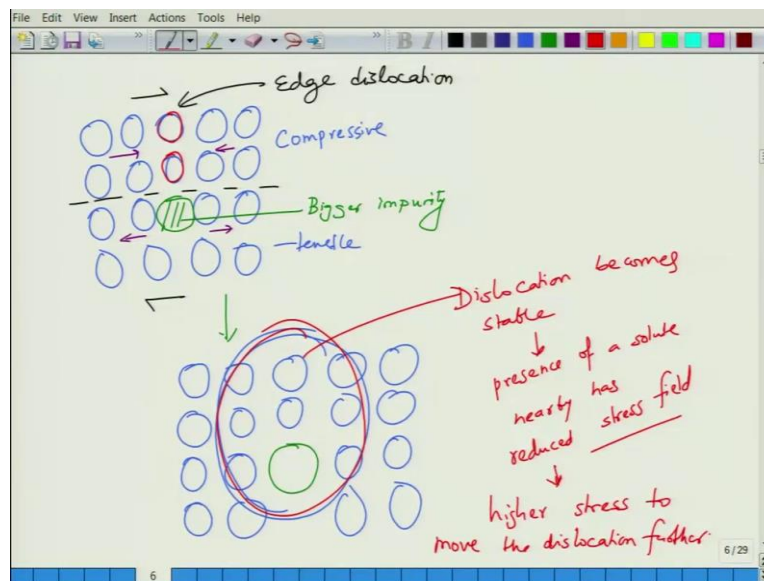 File Edit View Insert Actions Tools Help
B I
Edge dislocation
Compressive
Bigger impurity
tensile
Dislocation becomes
stable
presence of a solute
nearby has
reduced stress field
higher stress to
move the dislocation further.
6/29
6